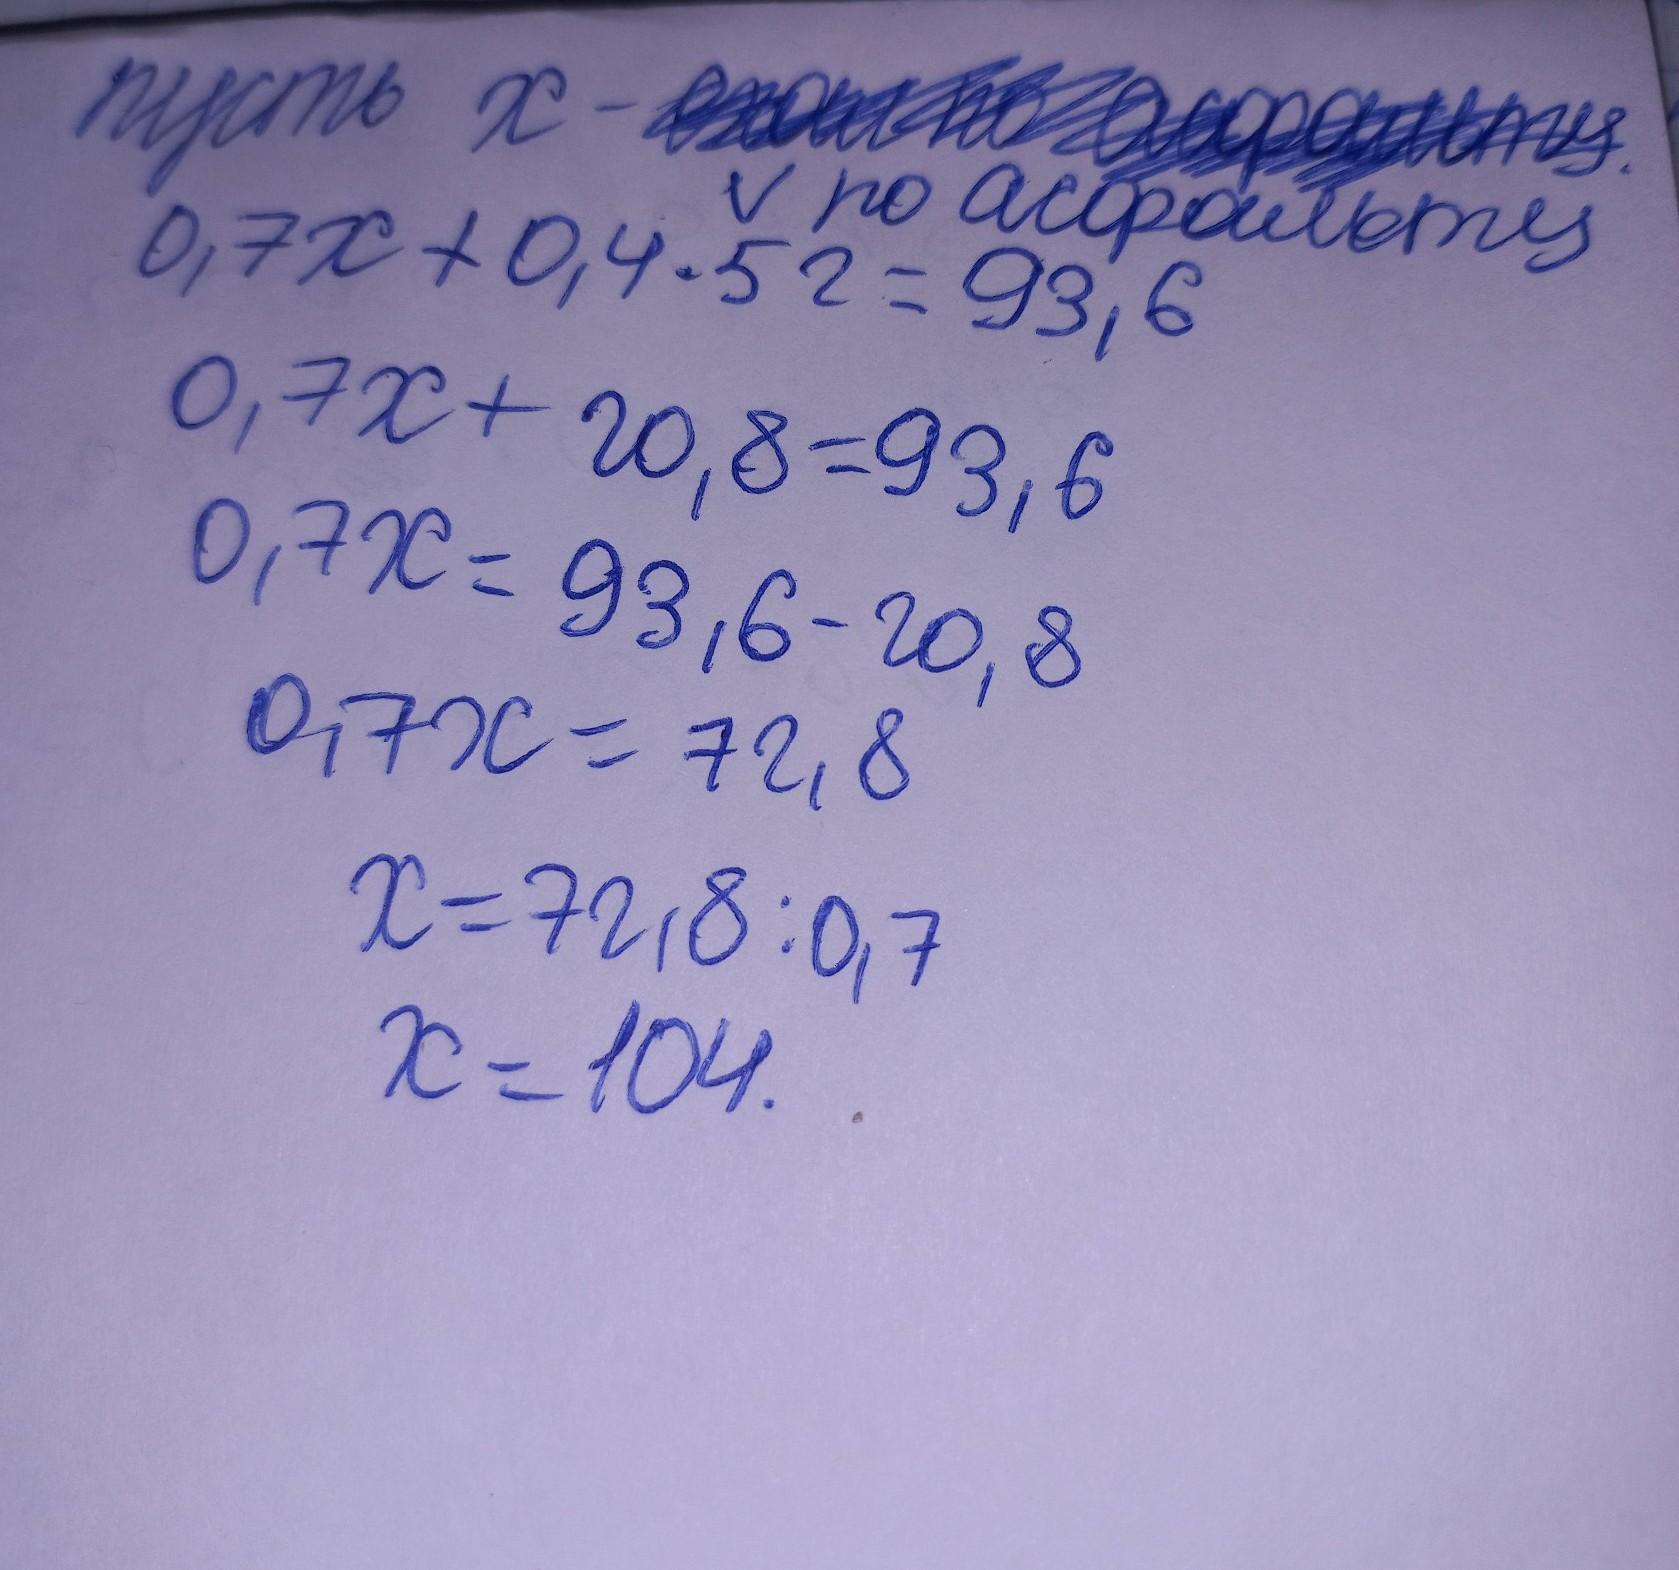 пусть х -
v по асфальту
0,7х + 0,4·52=93,6
0,7х+ 20,8=93,6
0,7х= 93,6-20,8
0,7х = 72,8
х=72,8:0,7
х=104.